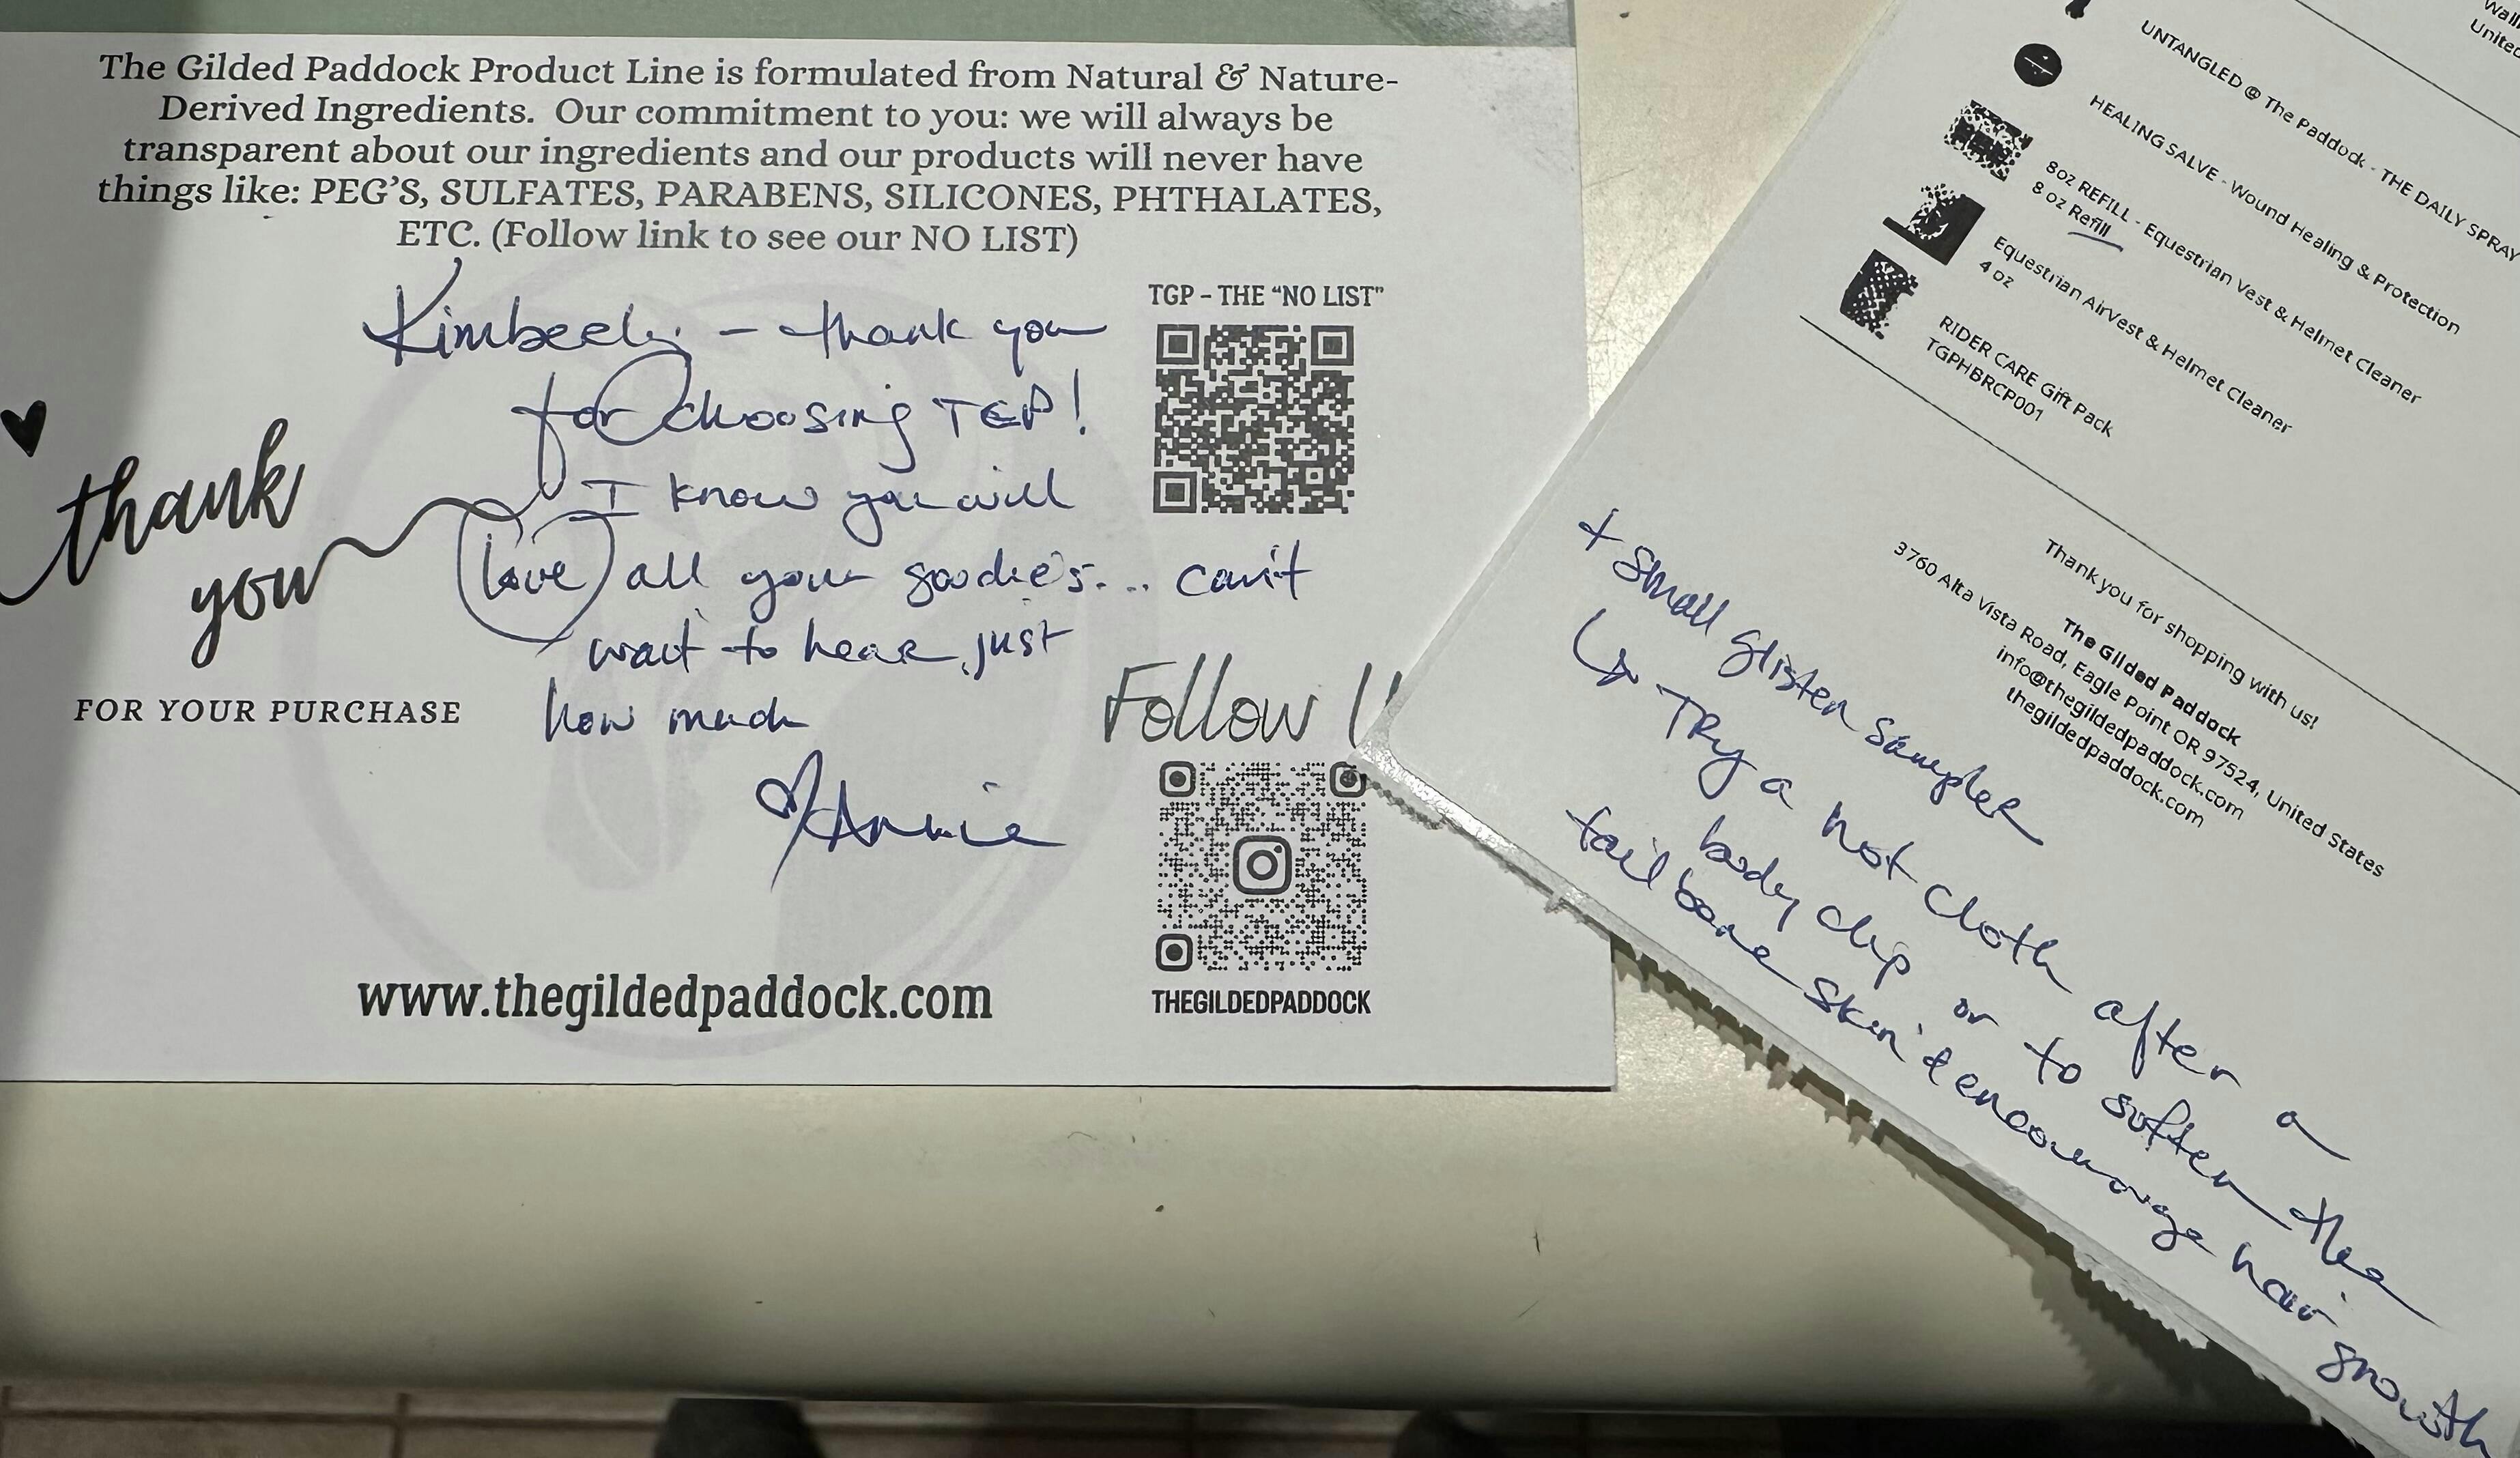 The Gilded Paddock Product Line is formulated from Natural & Nature-
Derived Ingredients. Our commitment to you: we will always be
transparent about our ingredients and our products will never have
things like: PEG'S, SULFATES, PARABENS, SILICONES, PHTHALATES,
ETC. (Follow link to see our NO LIST)
Kimberly - thank you
for choosing TGP!
I know you will
love all your goodies... can't
wait to hear just
how much
Annie
thank
you
FOR YOUR PURCHASE
TGP - THE "NO LIST"
Follow
THEGILDEDPADDOCK
www.thegildedpaddock.com
United
UNTANGLED @ The Paddock - THE DAILY SPRAY
HEALING SALVE - Wound Healing & Protection
8oz REFILL - Equestrian Vest & Helmet Cleaner
8 oz Refill
Equestrian AirVest & Helmet Cleaner
4 oz
RIDER CARE Gift Pack
TGPHBRCP001
Thank you for shopping with us!
The Gilded Paddock
3760 Alta Vista Road, Eagle Point OR 97524, United States
info@thegildedpaddock.com
thegildedpaddock.com
+ small glisten sampler
↳ TRY a hot cloth after a
body clip or to soften the
tail bone skin & encourage hair growth